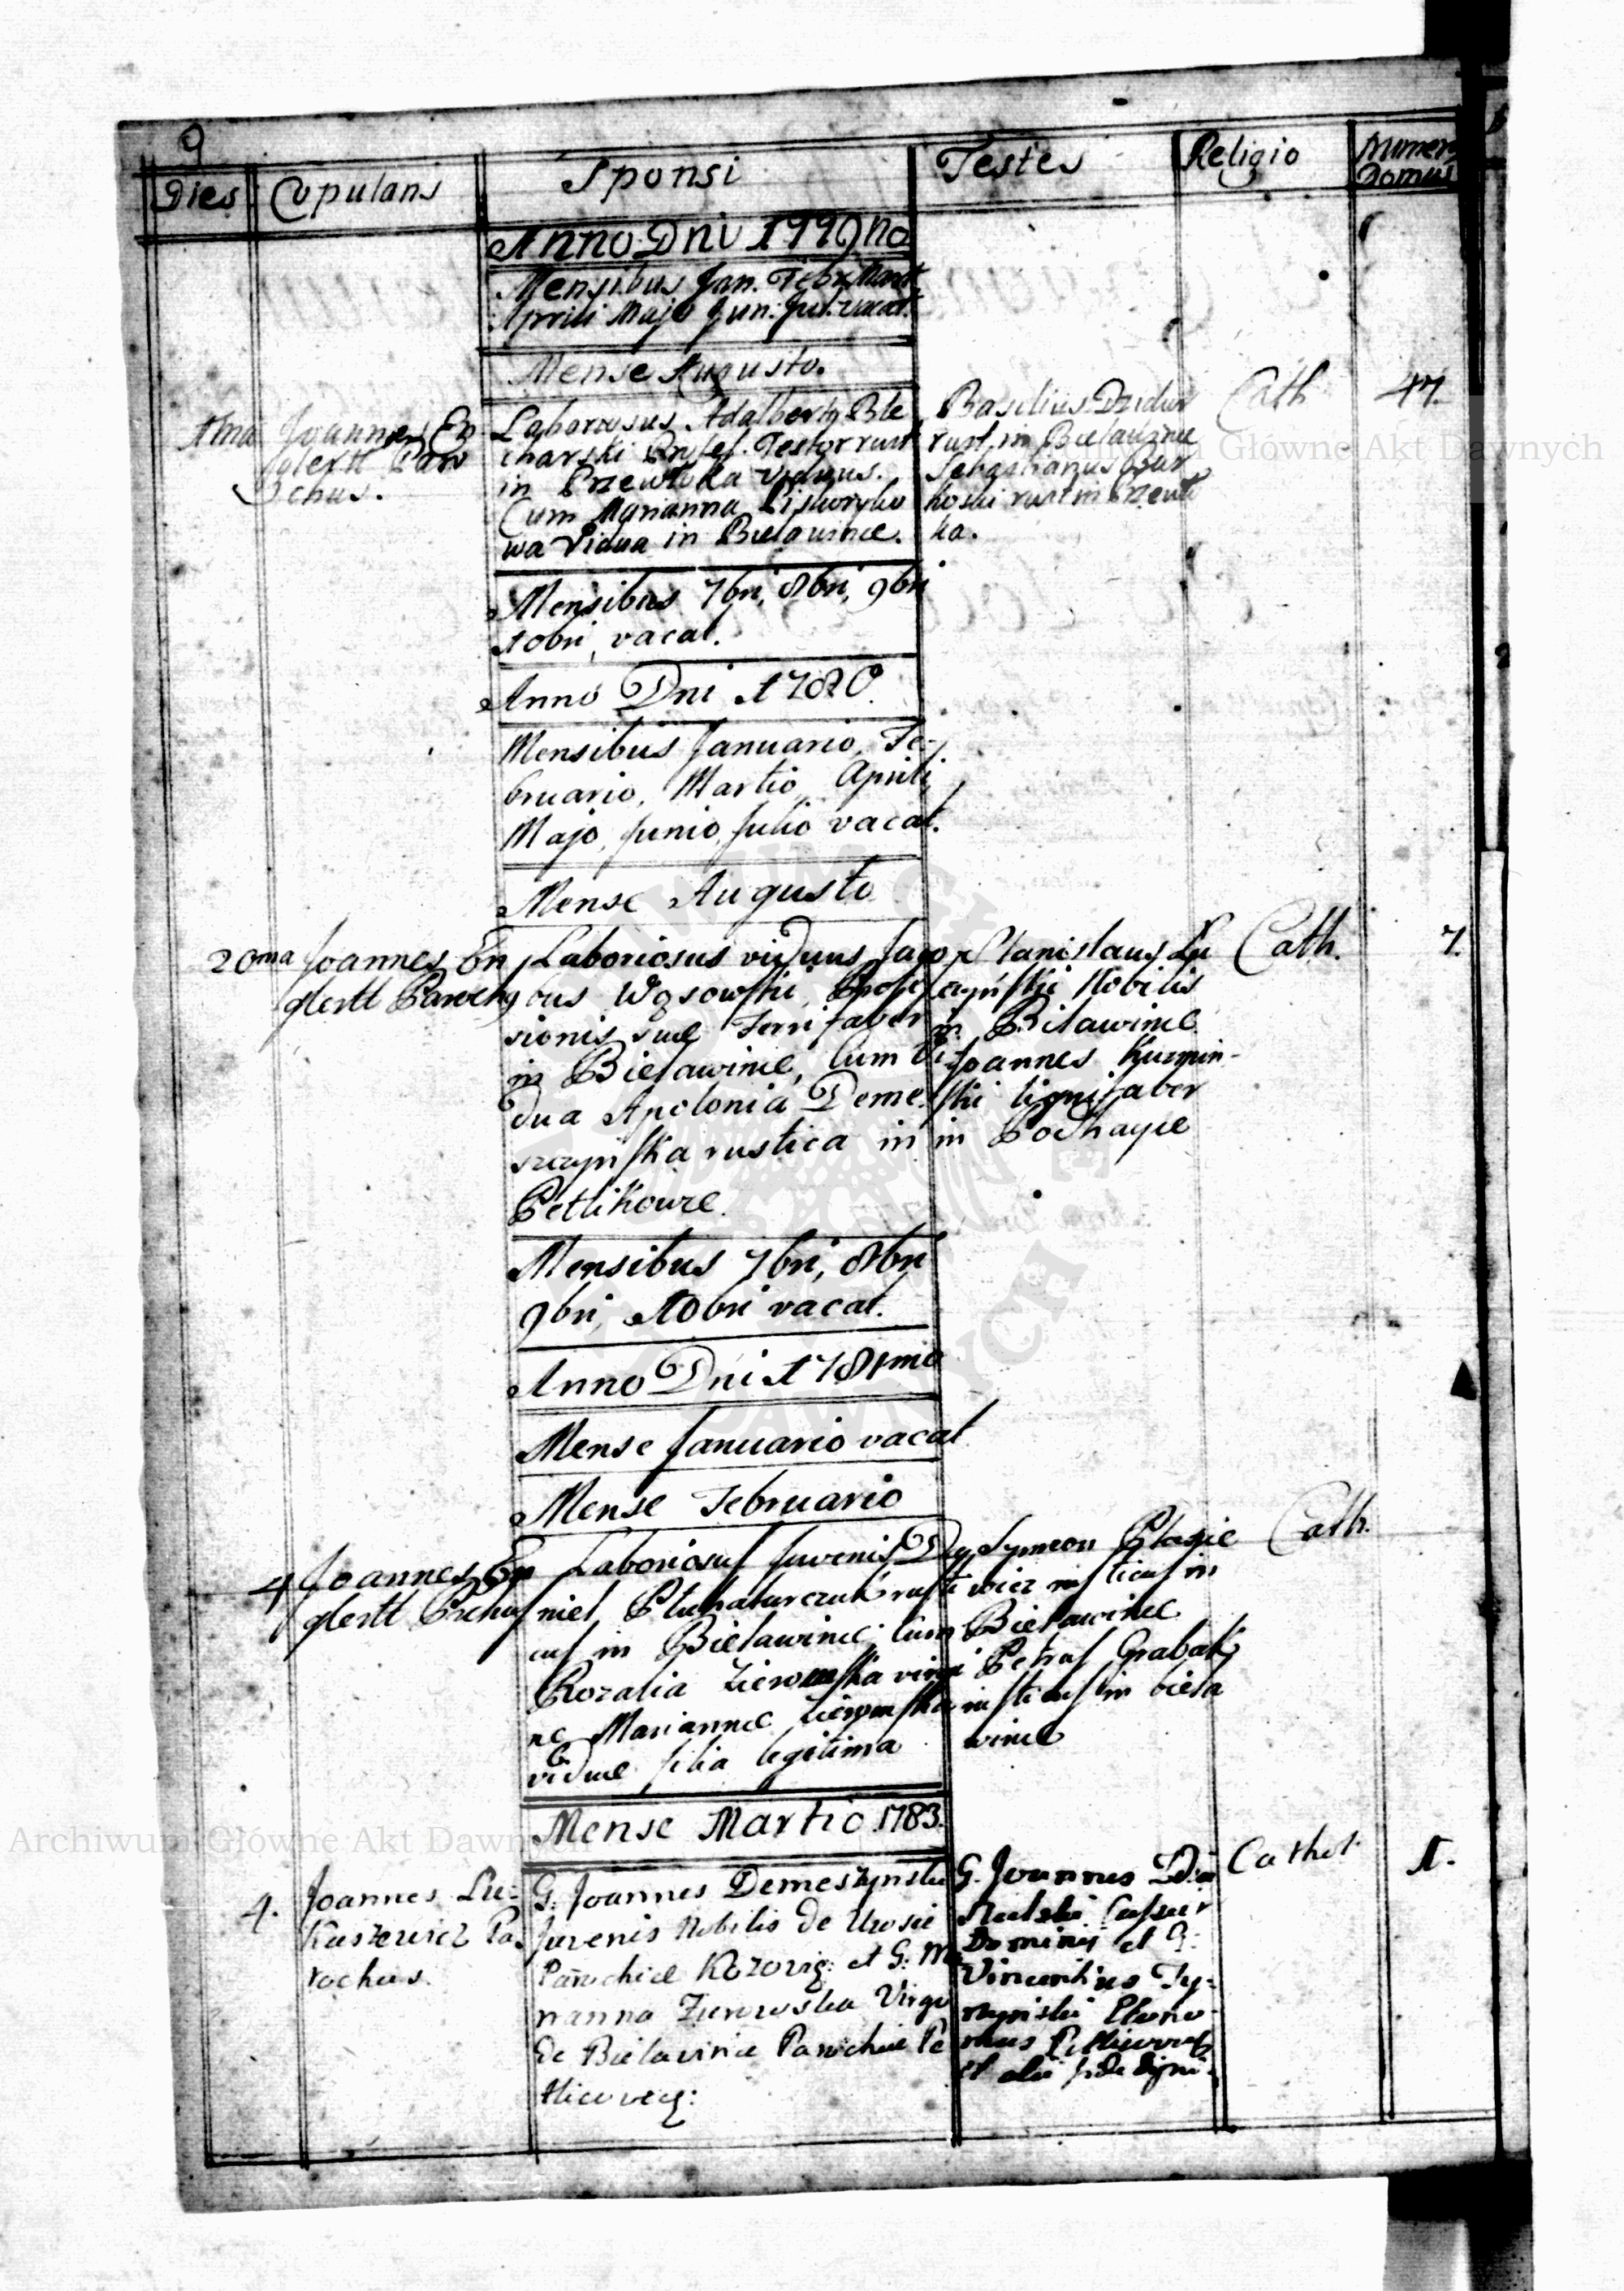 9
Dies Copulans Sponsi Testes Religio Numerus Domus
Anno Dni 1779no
Mensibus Jan. Febr. Mart.
Aprili Majo Jun: Jul. vacat.
Mense Augusto.
1ma Joannes En
glertt Paro
chus.
Laboriosus Adalbertg Ble
charski Profes. Textor rust
in Przewłoka viduus.
Cum Marianna
wa Vidua in Bielawince.
Basilius Dzidur
rust. in Bielawince
Sebastianus Bur
koski rust in Przewło
ka.
Cath
47.
Mensibus 7bri, 8bri, 9bri
10bri, vacat.
Anno Dni 1780.
Mensibus Januario, Fe-
bruario, Martio, Aprili,
Majo, Junio, Julio vacat.
Mense Augusto
20ma Joannes En
glertt Parochg
Laboriosus viduus Jaco
bus Wąsowski, Profes
sionis suæ Ferri faber
in Bielawince, cum Vi
dua Apolonia Deme
szczyńska rustica in
Petlikowce.
Stanislaus Łu
czyński Nobilis
in Bilawince
Joannes Kuzmin-
ski ligni faber
in Podhayce
Cath.
7.
Mensibus 7bri, 8bri
9bri, 10bri vacat.
Anno Dni 1781mo
Mense Januario vacat
Mense Februario
4 Joannes En
glertt Prchus
Laboriosus Juvenis Da
niel, rusti
cus in Bielawince; cum
Rozalia virgi
ne Mariannæ
viduæ filia legitima
Symeon Błazie
wicz rusticus in
Bielawince
Petrus Grabak
rusticus in biela
wince
Cath.
Mense Martio 1783.
4. Joannes Łu-
kaszewicz Pa
rochus.
G: Joannes Demeszynski
Juvenis Nobilis de Uwsie
Parochiæ Kozovię: et G: Ma
rianna Zurowska Virgo
de Bielavince Parochiæ Pe
tlicoveg:
G. Joannes
Dominij et G:
Vincentius Ty-
et alii fide digni.
Cathol.
1.
Archiwum Główne Akt Dawnych
Archiwum Główne Akt Dawnych